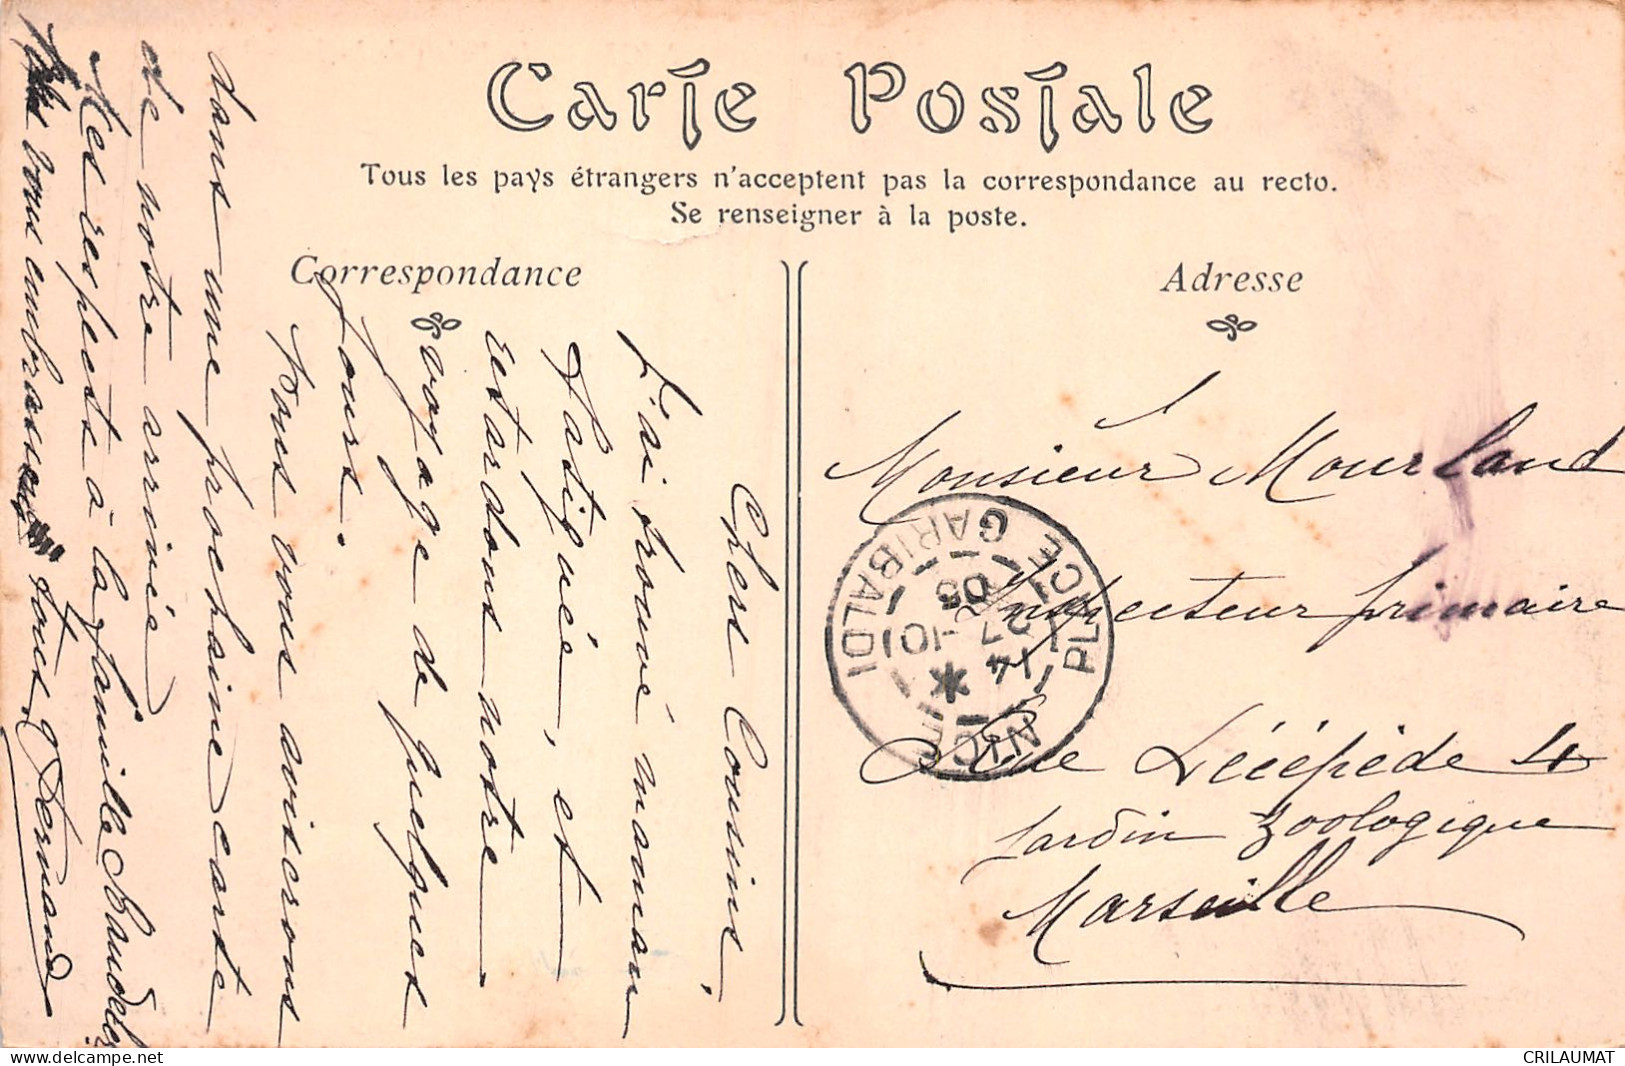 Carte Postale
Tous les pays étrangers n'acceptent pas la correspondance au recto.
Se renseigner à la poste.
Correspondance
Adresse
Chers Cousins,
J'ai trouvé maman
fatiguée, et
retardons notre
voyage de quelques
jours.
Nous vous aviserons
dans une prochaine carte
de notre arrivée
Mes respects à la famille
vous embrassons tous, Fernand
Monsieur Mourland
Inspecteur primaire
Rue Lécépède 4
Jardin Zoologique
Marseille
NICE PLACE GARIBALDI
14
27 -10
05
CRILAUMAT